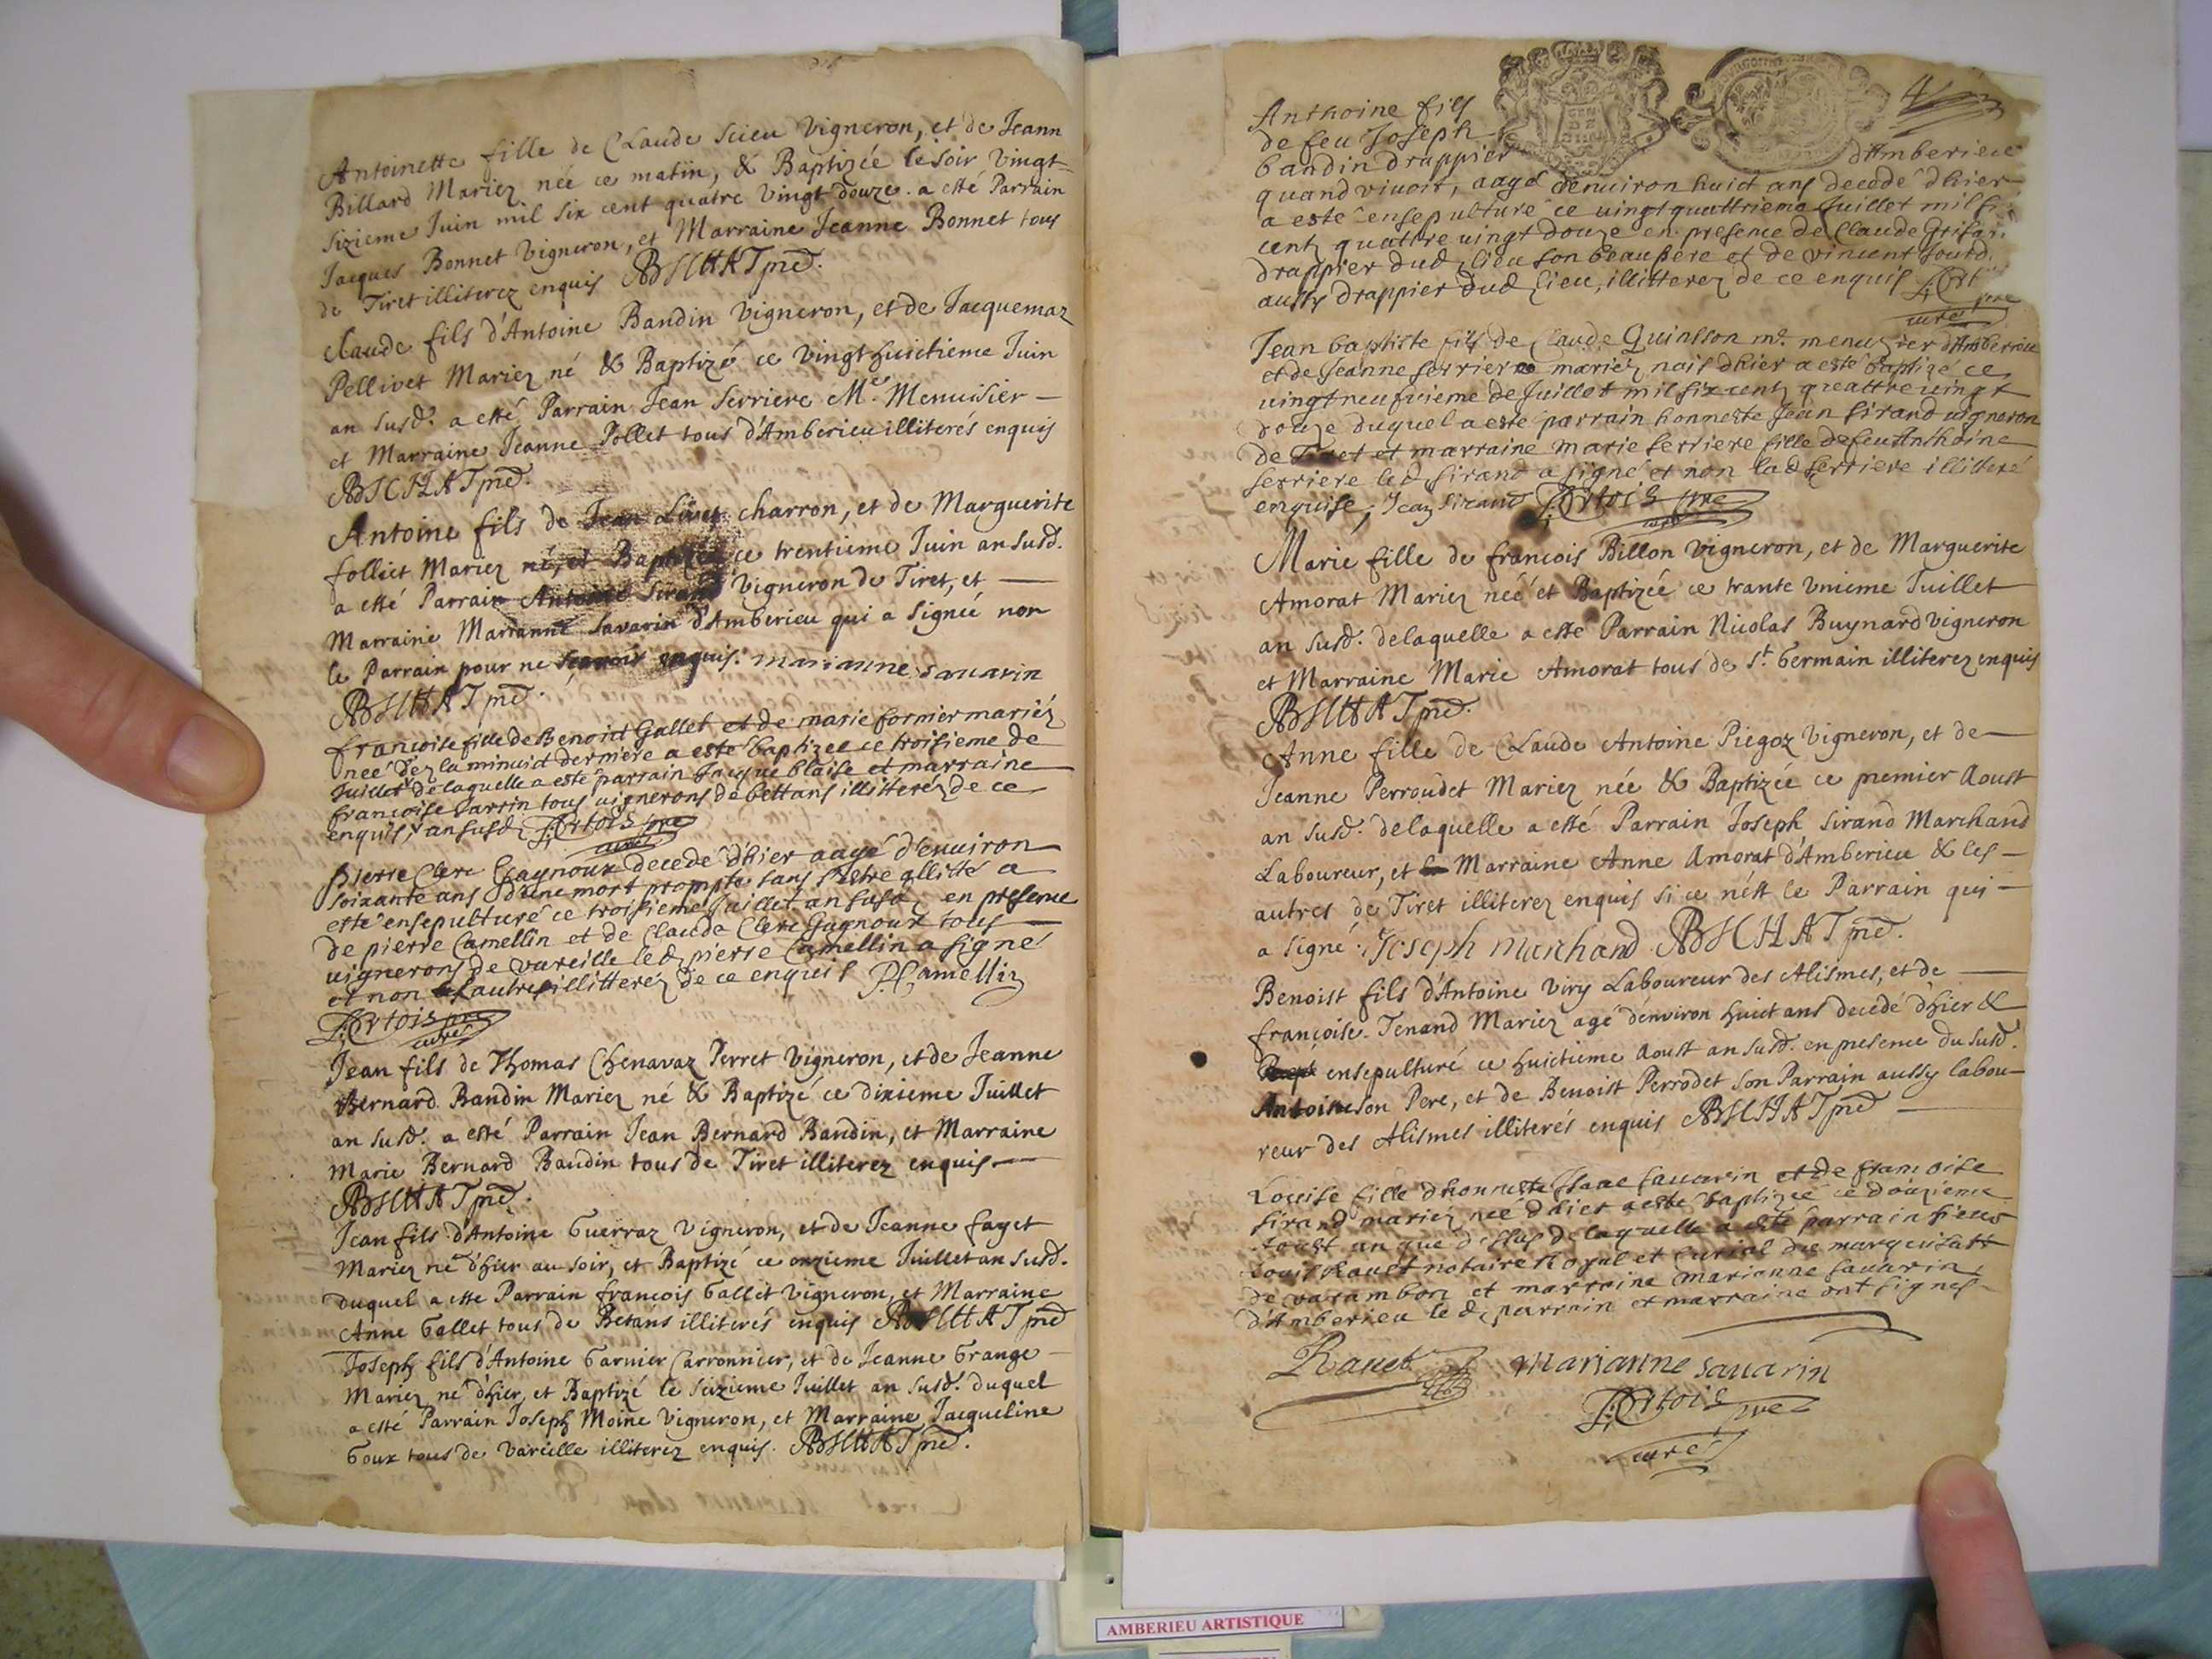 Antoinette fille de Claude Scieu Vigneron, et de Jeann
Billard Mariez née ce matin, & Baptizée le soir Vingt
sizieme Juin mil six cent quatre Vingt Douze. a esté Parrain
Jacques Bonnet Vigneron, et Marraine Jeanne Bonnet tous
de Tiret illiterez enquis
Claude fils d'Antoine Bandin Vigneron, et de Jacquemaz
Pellivet Mariez né & Baptizé ce Vingt huictieme Juin
an susd. a esté Parrain Jean Serriere Me. Menuisier
et Marraine Jeanne Pollet tous d'Amberieu illiterés enquis
Antoine fils de Jean charron, et de Marguerite
folliet Mariez né, et Baptizé ce trentieme Juin an susd.
a esté Parrain Antoine Sirand Vigneron de Tiret, et
Marraine Marianne Savarin d'Amberieu qui a signée non
le Parrain pour ne sçavoir enquis. marianne sauarin
francoise fille de Benoist Gallet et de marie fornier mariéz
neé déz la minuict derniere a esté baptizee ce troisieme de
Juillet de laquelle a esté parrain Jacque blaise et marraine
francoise tous uignerons de bettans illitteréz de ce
enquis, an susd. Ortois pre
curé
pierre Clerc Gagnoux decedé dhier aagé d'enuiron
soixante ans d'une mort prompte sans s'estre allitté a
esté ensepulturé ce troisieme Juillet an susd. en presence
de pierre Camellin et de Claude Clerc Gagnoux tous
uignerons de vareille led. pierre Camellin a signé
et non autre illitteréz de ce enquis P Camellin
Ortois pre
curé
Jean fils de Thomas Chenavaz Perret Vigneron, et de Jeanne
Bernard Bandin Mariez né & Baptizé ce dixieme Juillet
an susd. a esté Parrain Jean Bernard Bandin, et Marraine
Marie Bernard Bandin tous de Tiret illiterez enquis
Jean fils d'Antoine Guerraz Vigneron, et de Jeanne fayet
Mariez né d'hier au soir, et Baptizé ce onzieme Juillet an susd.
duquel a esté Parrain francois Gallet Vigneron, et Marraine
Anne Gallet tous de Betans illiterés enquis
Joseph fils d'Antoine Garnier Carronnier, et de Jeanne Grange
Mariez né d'hier, et Baptizé le seizieme Juillet an susd. duquel
a esté Parrain Joseph Moine Vigneron, et Marraine Jacqueline
Goux tous de Vareille illiterez enquis.
4
Anthoine fils
de feu Joseph
bandin drappier d'Amberieu
quand viuoit, aagé denuiron huict ans decedé dhier
a esté ensepulturé ce uingt quattrieme Juillet mil si
cents quattre uingt douze en presence de Claude Grisar
drappier dud. lieu son beaupere et de vincent
aussy drappier dud. lieu, illitterez de ce enquis
pre
curé
Jean baptiste fils de Claude Quinsson me. menuzier d'Amberieu
et de Jeanne serriere mariéz nais dhier a esté baptizé ce
uingt neufuieme de Juillet mil six cents quattre uingt
douze duquel a esté parrain honneste Jean sirand uigneron
de Tiret et marraine marie serriere fille de feu Anthoine
serriere led. sirand a signé et non lad. serriere illitteré
enquise, Jean Sirand Ortois pre
curé
Marie fille de francois Billon Vigneron, et de Marguerite
Amorat Mariez néé et Baptizée ce trante unieme Juillet
an susd. delaquelle a esté Parrain Nicolas Buynard Vigneron
et Marraine Marie Amorat tous de St. Germain illiterez enquis
Anne fille de Claude Antoine Piegoz Vigneron, et de
Jeanne Perroudet Mariez née & Baptizée ce premier Aoust
an susd. delaquelle a esté Parrain Joseph Sirand Marchand
Laboureur, et Marraine Anne Amorat d'Amberieu & les
autres de Tiret illiterez enquis si ce n'est le Parrain qui
a signé. Joseph marchand
Benoist fils d'Antoine Viry Laboureur des Alismes, et de
françoise Tenand Mariez agé d'environ huict ans decedé d'hier &
ensepulturé ce huictieme Aoust an susd. en presence du susd.
Antoine son Pere, et de Benoist Perrodet son Parrain aussy labou
reur des Alismes illiterés enquis
Louise fille dhonneste sauarin et de francoise
sirand mariéz née dhier a esté baptizée ce douzieme
Aoust an que dessus delaquelle a esté parrain sieur
Louis Rauet notaire Royal et Curial du marquisatt
de varambon et marraine marianne sauarin
d'Amberieu led. parrain et marraine ont signes
Rauet marianne sauarin
Ortois pre
curé
AMBERIEU ARTISTIQUE